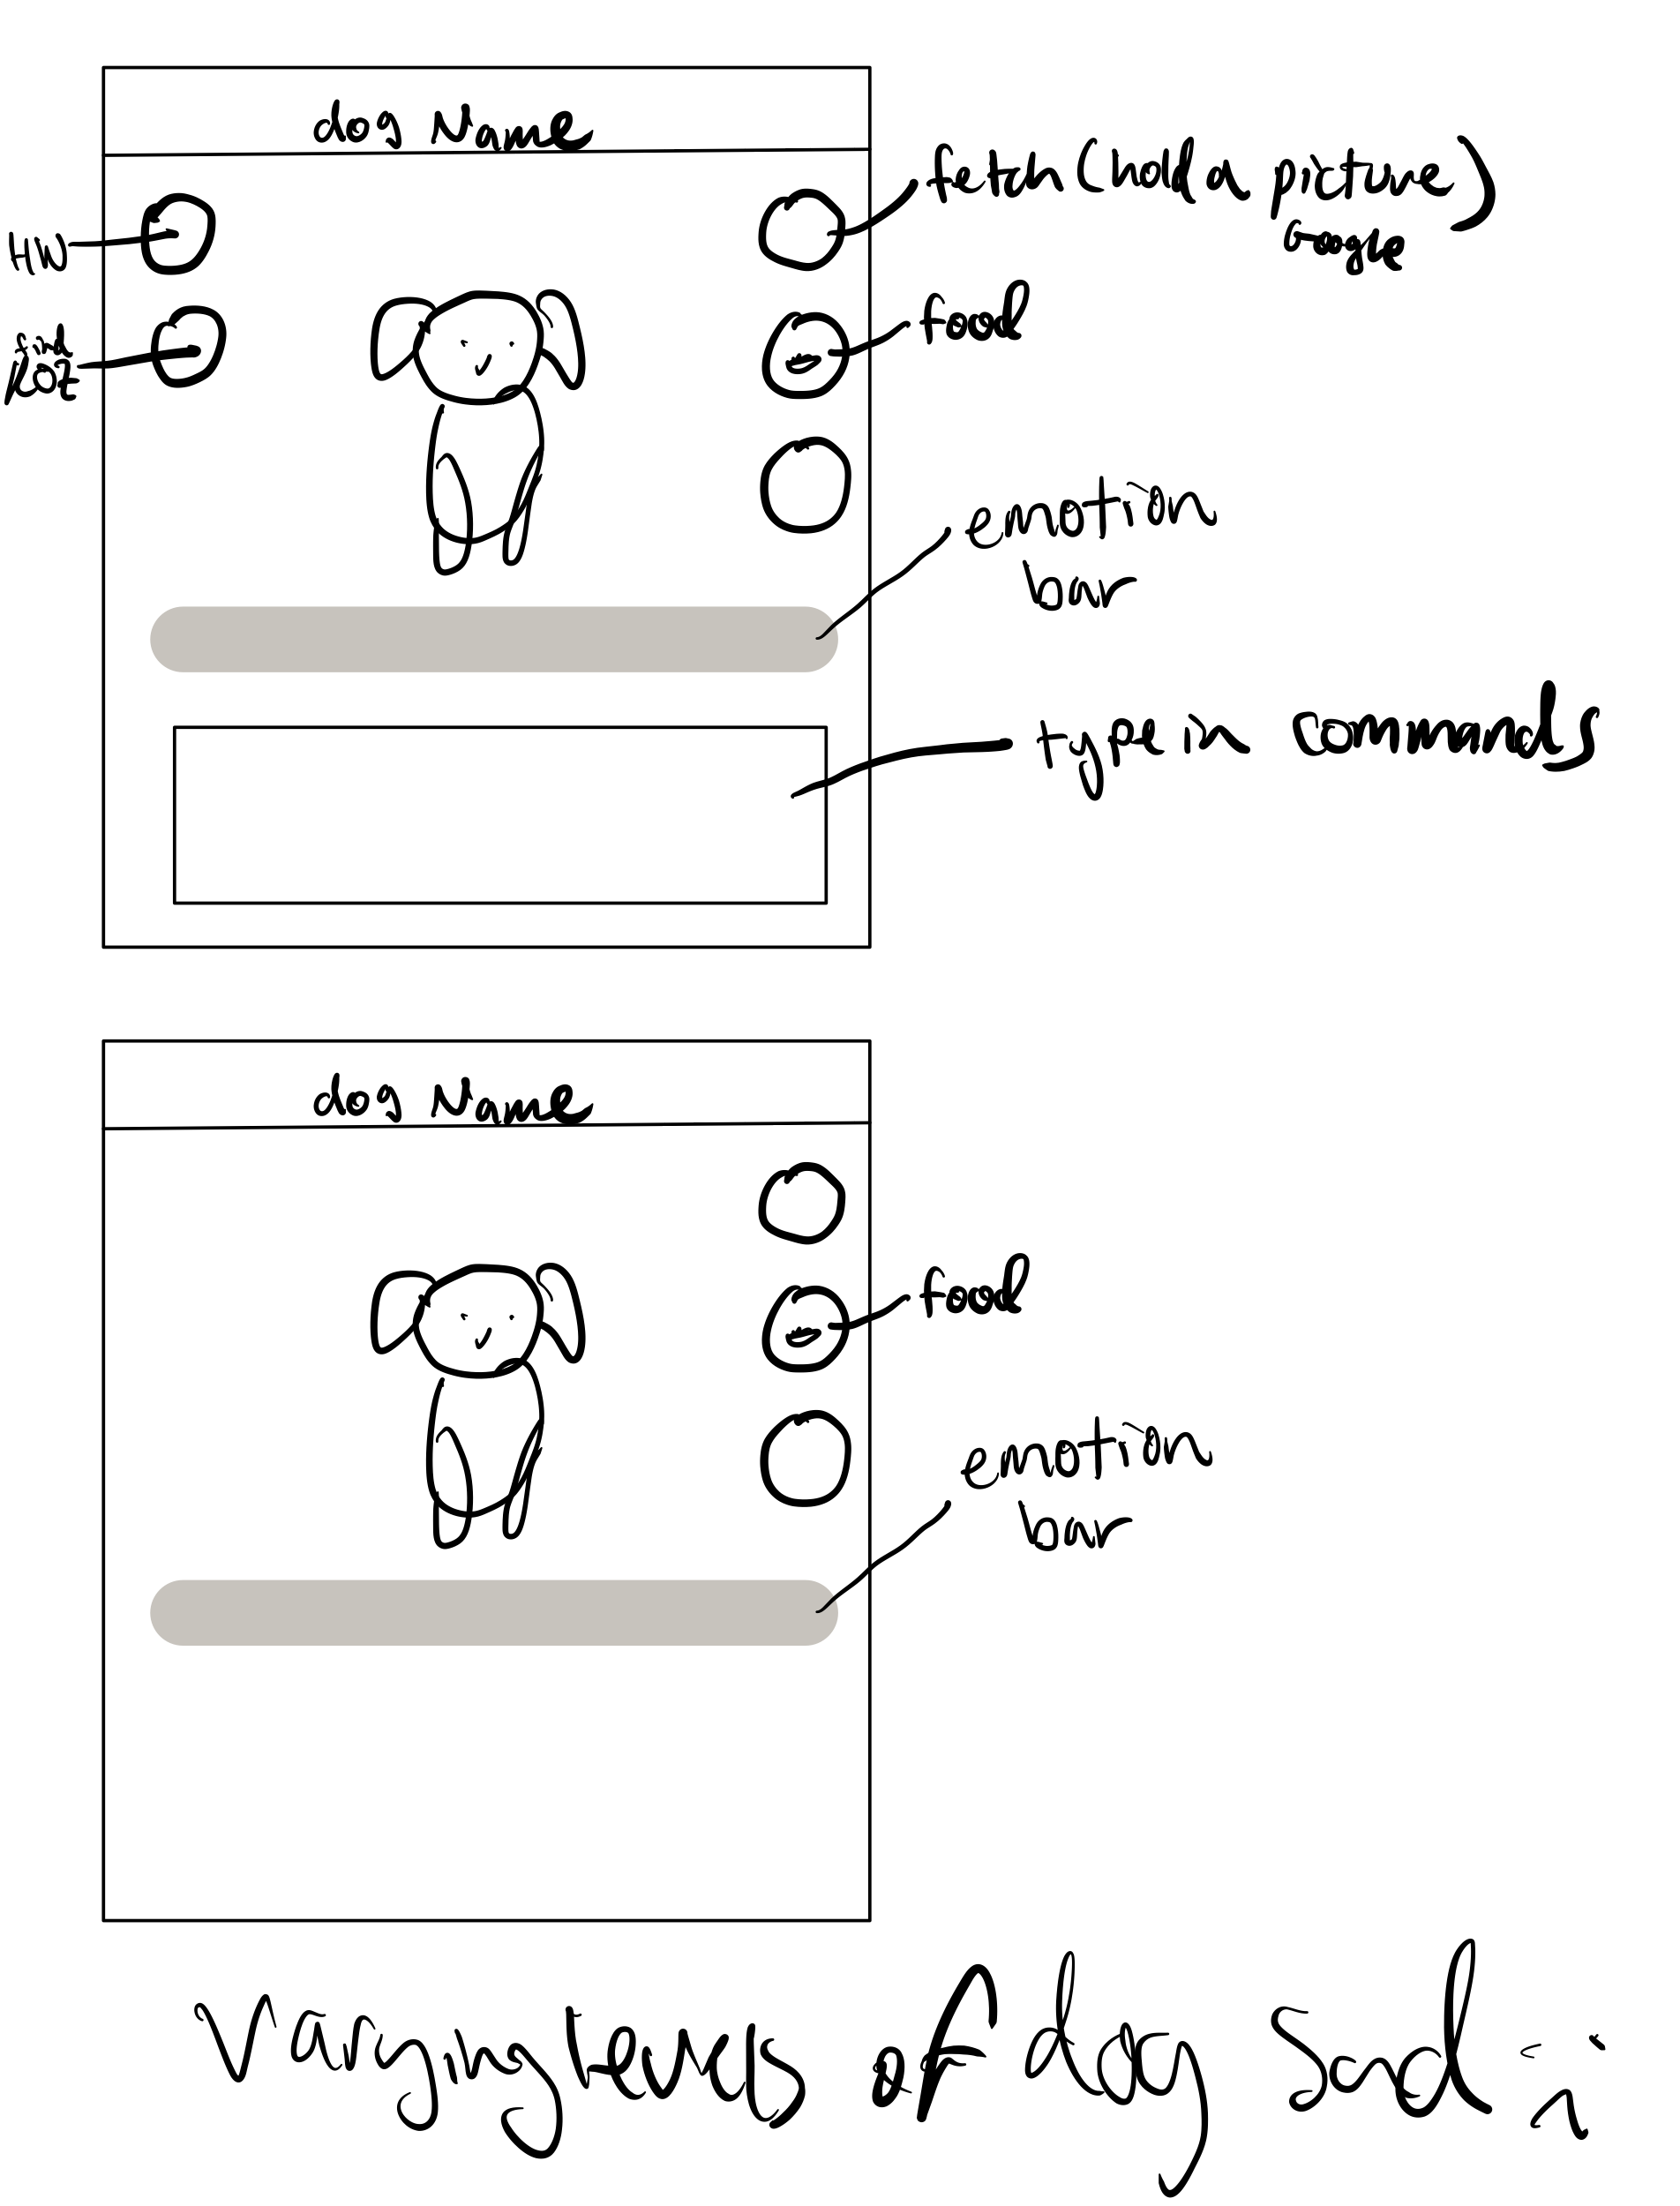 dog Name
fetch (wild a picture)
Google
food
emotion
bar
type in commands
dog Name
food
emotion
bar
Varying levels of dog Sad :